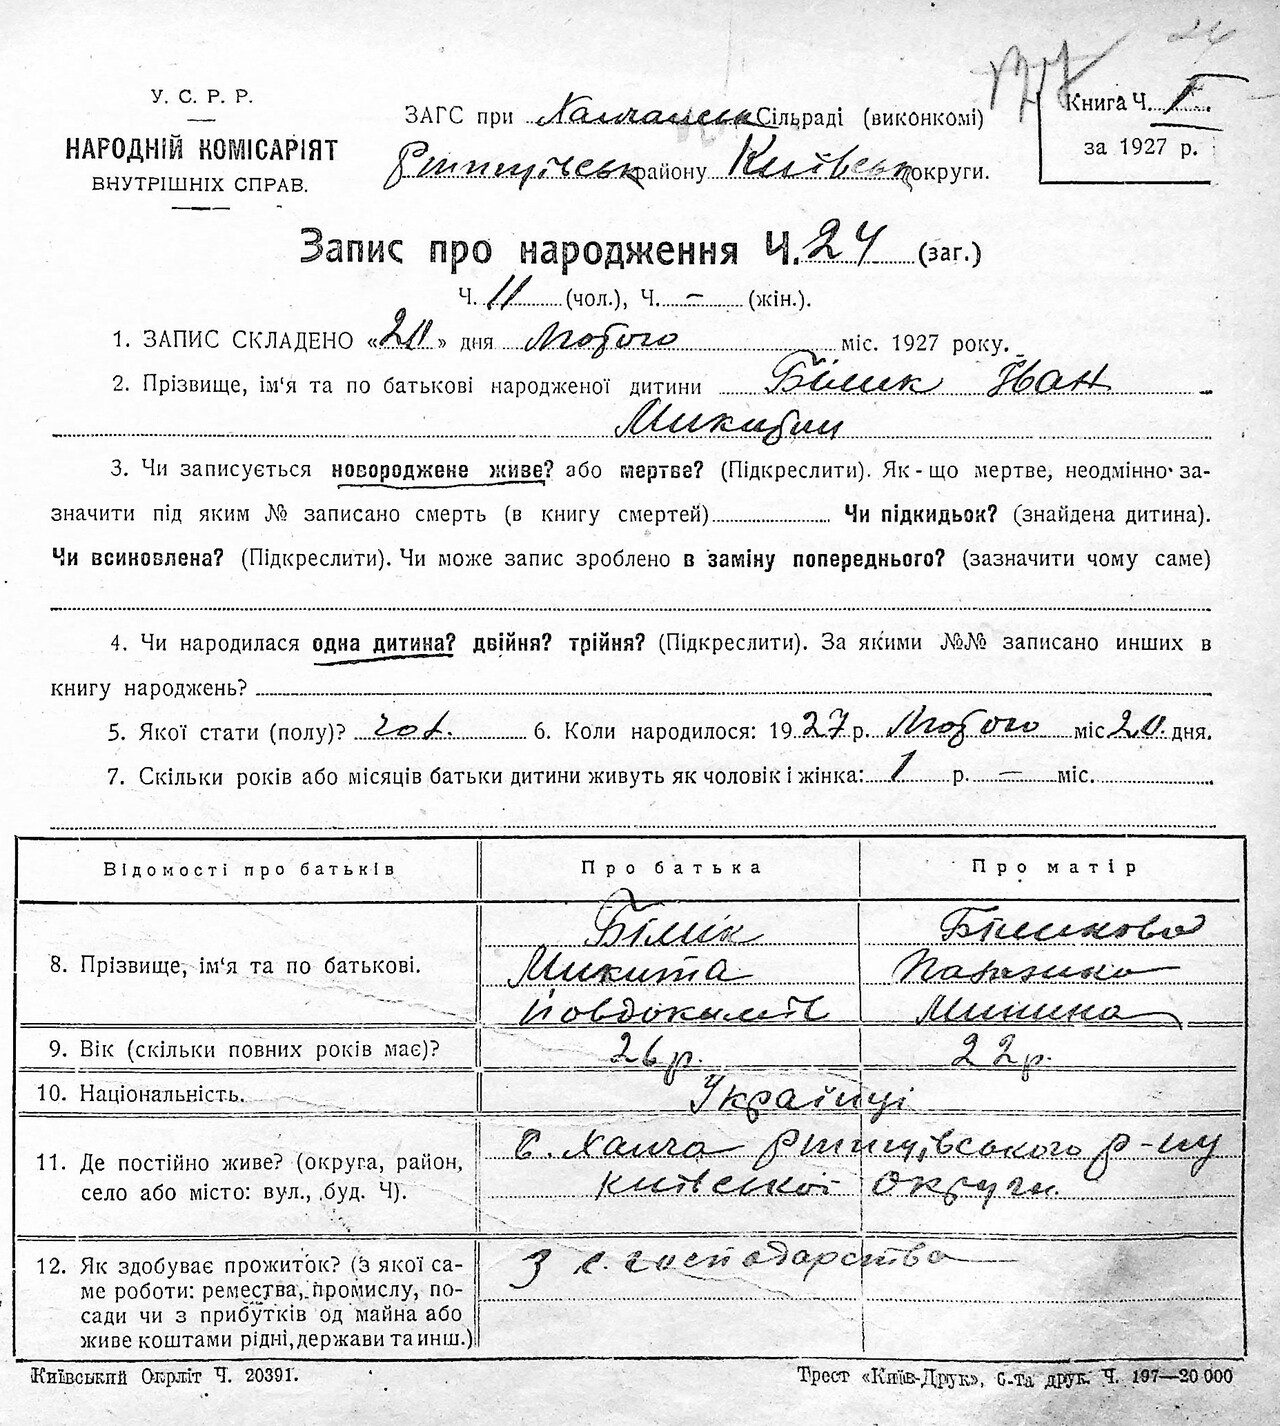 24
127
У. С. Р. Р.
НАРОДНІЙ КОМІСАРІЯТ
ВНУТРІШНІХ СПРАВ.
ЗАГС при Халчанськ Сільраді (виконкомі)
Ртищівськ району Київськ округи.
Книга Ч. I.
за 1927 р.
Запис про народження Ч. 24 (заг.)
Ч. 11 (чол.), Ч. – (жін.).
1. ЗАПИС СКЛАДЕНО «20» дня Лютого міс. 1927 року.
2. Прізвище, ім'я та по батькові народженої дитини Білик Іван
Микитин
3. Чи записується новороджене живе? або мертве? (Підкреслити). Як-що мертве, неодмінно за-
значити під яким № записано смерть (в книгу смертей) Чи підкидьок? (знайдена дитина).
Чи всиновлена? (Підкреслити). Чи може запис зроблено в заміну попереднього? (зазначити чому саме)
4. Чи народилася одна дитина? двійня? трійня? (Підкреслити). За якими №№ записано инших в
книгу народжень?
5. Якої стати (полу)? чол. 6. Коли народилося: 1927 р. Лютого міс 20. дня.
7. Скільки років або місяців батьки дитини живуть як чоловік і жінка: 1 р. – міс.
Відомості про батьків Про батька Про матір
8. Прізвище, ім'я та по батькові.
Білік Биликова
Микита
Йовдокимів Минина
9. Вік (скільки повних років має)? 26 р. 22 р.
10. Національність. Українці
11. Де постійно живе? (округа, район,
село або місто: вул., буд. Ч).
с. Халча Ртищівського р-ну
Київської Округи.
12. Як здобуває прожиток? (з якої са-
ме роботи: ремества, промислу, по-
сади чи з прибутків од майна або
живе коштами рідні, держави та инш.)
З с. господарства
Київський Окрліт Ч. 20391. Трест «Київ-Друк», 6-та друк. Ч. 197—20 000